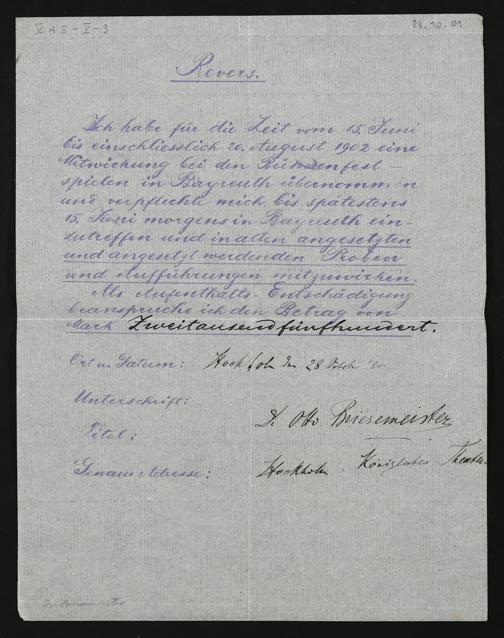 V A 5 - V - 3
28.10.01
Revers.
Ich habe für die Zeit vom 15. Juni
bis einschliesslich 20. August 1902 eine
Mitwirkung bei den Bühnenfest-
spielen in Bayreuth übernommen
und verpflichte mich bis spätestens
15. Juni morgens in Bayreuth ein-
zutreffen und in allen angesetzten
und angesetzt werdenden Proben
und Aufführungen mitzuwirken.
Als Aufenthalts-Entschädigung
beanspruche ich den Betrag von
Mark Zweitausendfünfhundert.
Ort u. Datum: Stockholm den 28 Octob
Unterschrift: Dr. Otto Briesemeister
Titel:
Genaue Adresse: Stockholm Königliches Theater